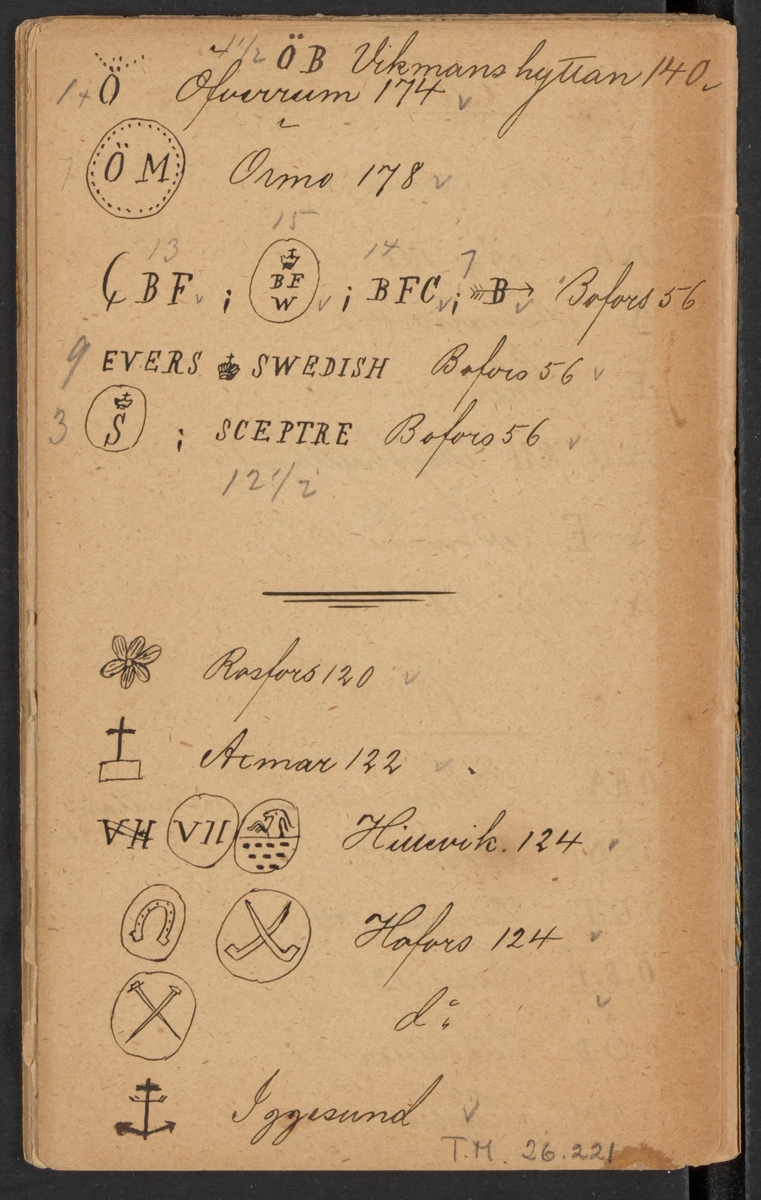 4 1/2 ÖB Vikmanshyttan 140
1+ Ö Öfverrum 174 v
7 ÖM Örmo 178 v
13 15 14 7
BF v ; BF W v ; BFC v ; B v Bofors 56
9 EVERS SWEDISH Bofors 56 v
3 S ; SCEPTRE Bofors 56 v
12 1/2
Rosfors 120 v
Acmar 122 v
VII VII Hillevik. 124 v
Hofors 124 v
do v
Iggesund v
T.M. 26.221